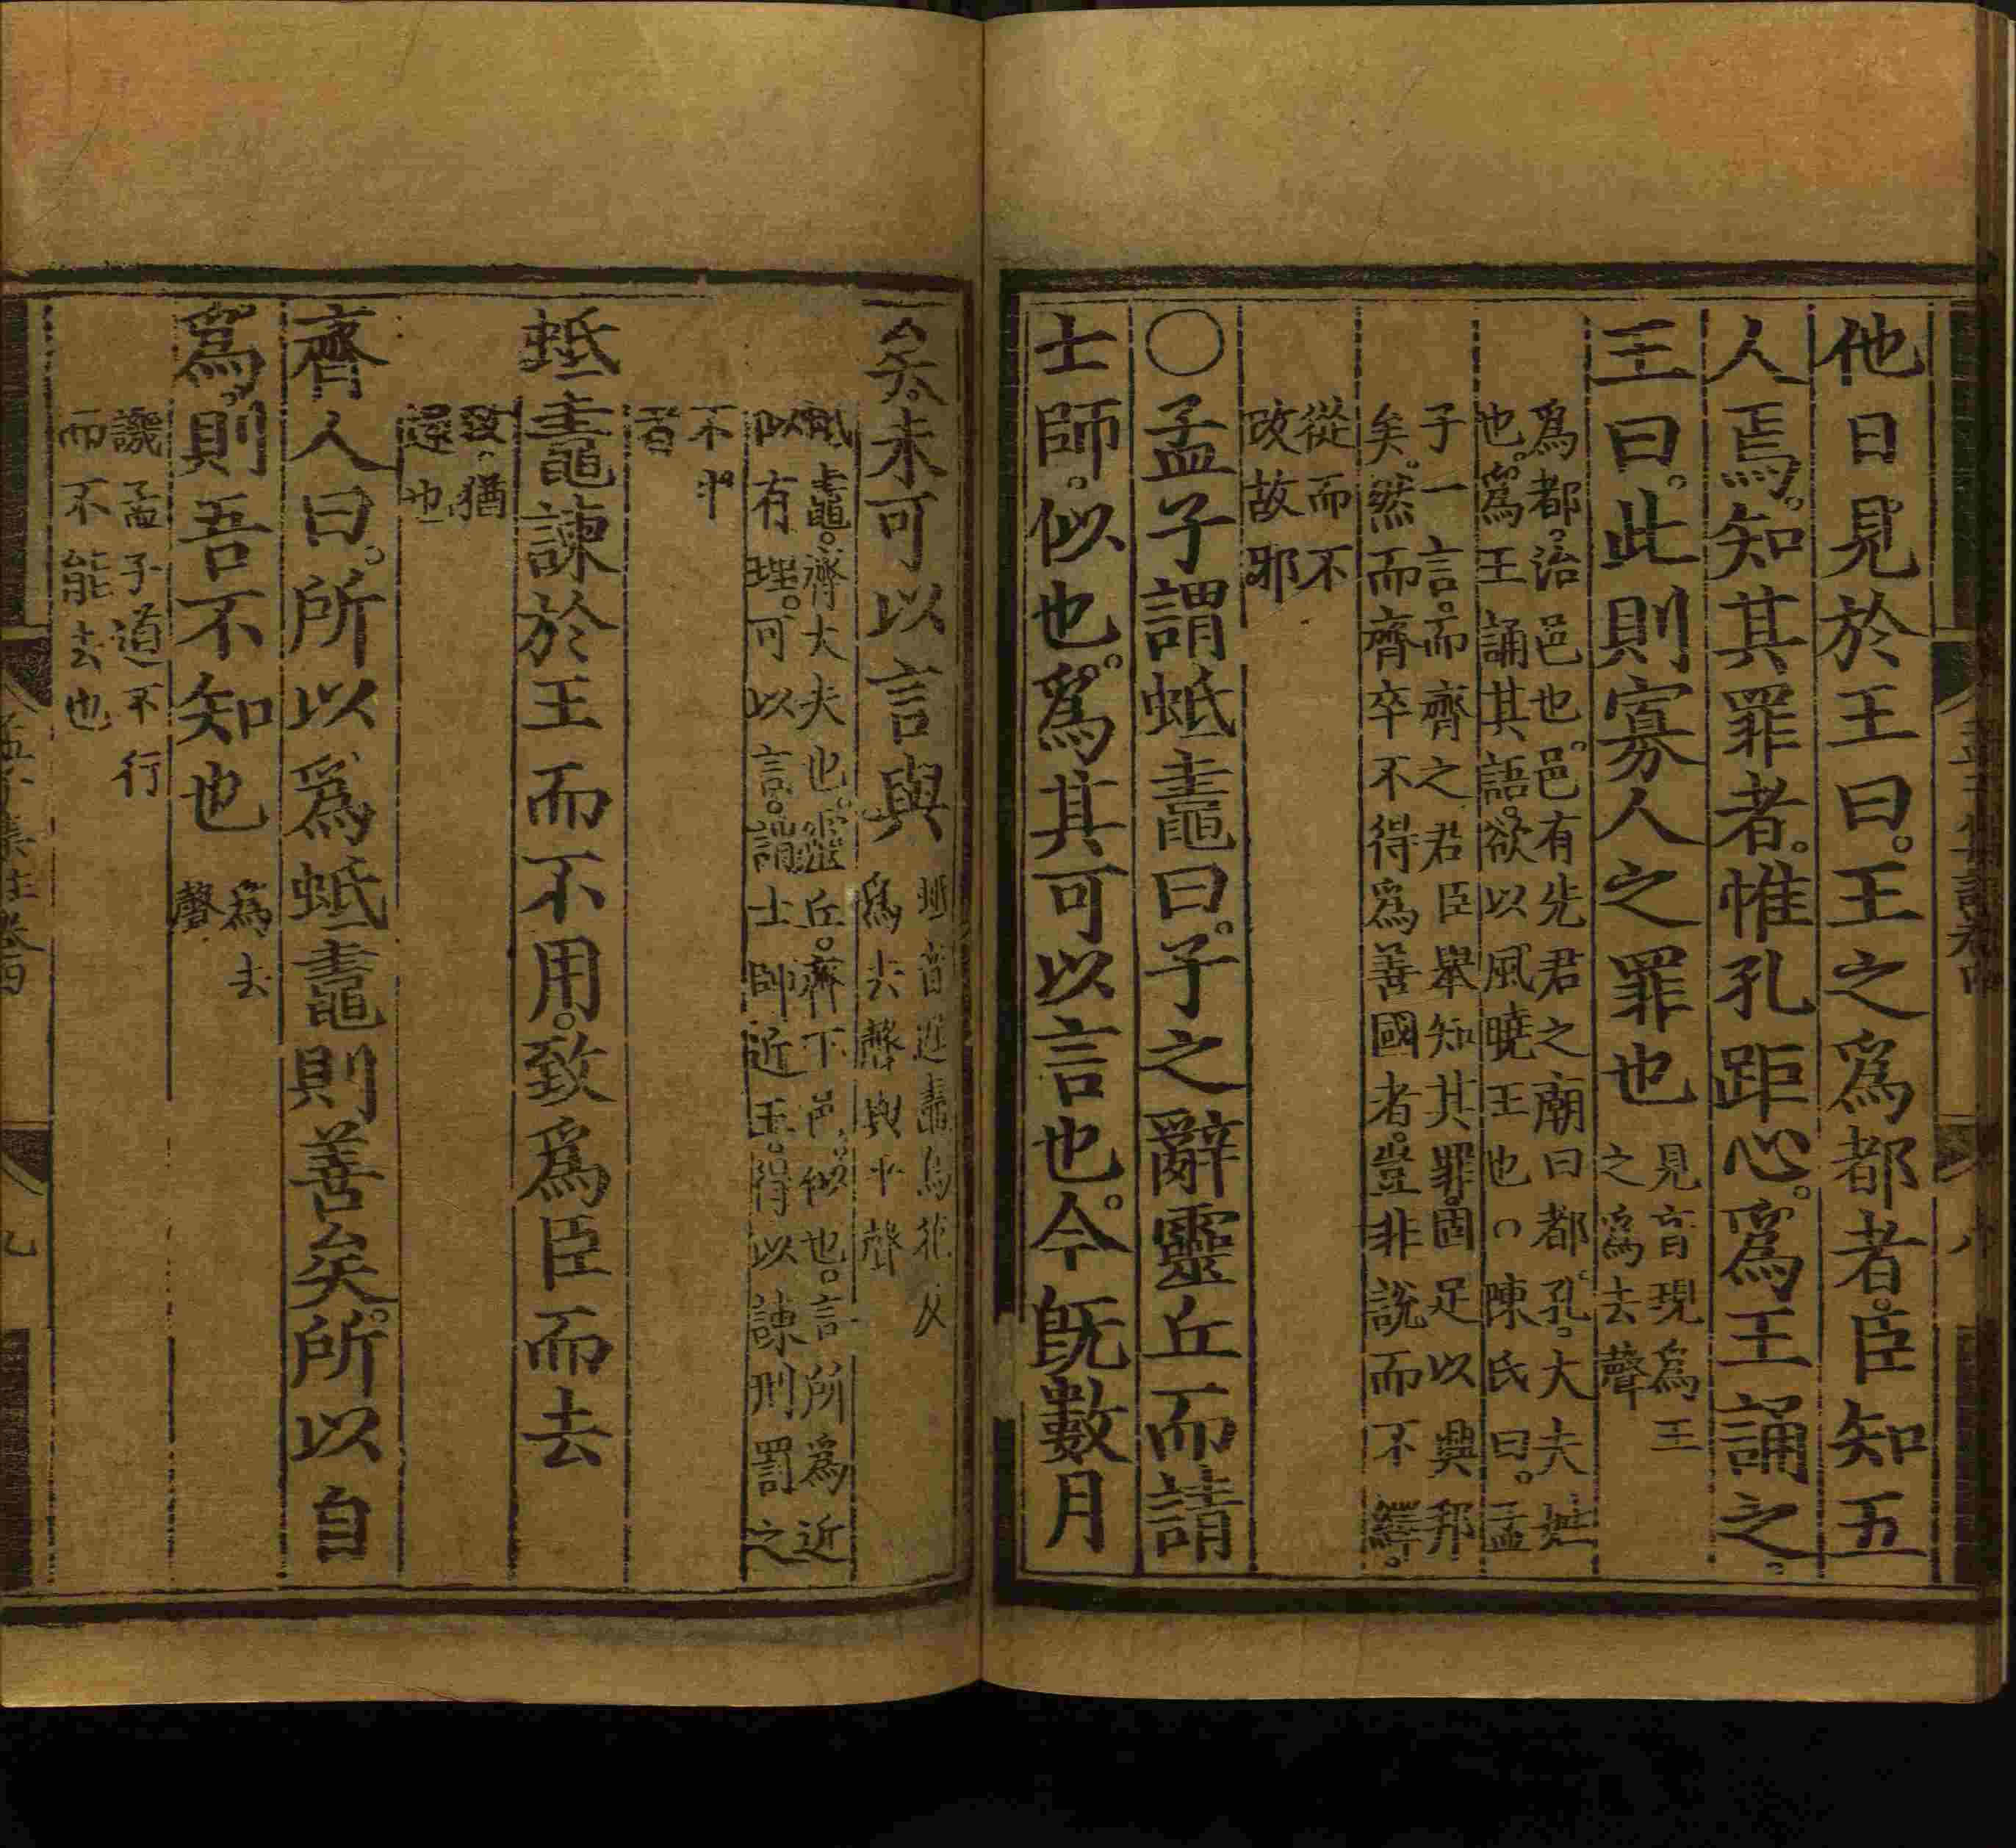 他日見於王曰。王之爲都者。臣知五
人焉。知其罪者。惟孔距心。爲王誦之。
王曰。此則寡人之罪也
見音現爲王
之爲去聲
爲都。治邑也。邑有先君之廟曰都。孔。大夫姓
也。爲王誦其語。欲以風曉王也○陳氏曰。孟
子一言。而齊之君臣舉知其罪。固足以興邦
矣。然而齊卒不得爲善國者。豈非說而不繹。
從而不
改故邪
○孟子謂蚳鼃曰。子之辭靈丘而請
士師。似也。爲其可以言也。今旣數月
矣。未可以言與
蚳音遲鼃烏花反
爲去聲與平聲
蚳鼃。齊大夫也。靈丘。齊下邑。似也。言所爲近
似有理。可以言。謂士師近王。得以諫刑罰之
不中
者
蚳鼃諫於王而不用。致爲臣而去
致。猶
還也
齊人曰。所以爲蚳鼃則善矣。所以自
爲。則吾不知也
爲去
聲
譏孟子道不行
而不能去也